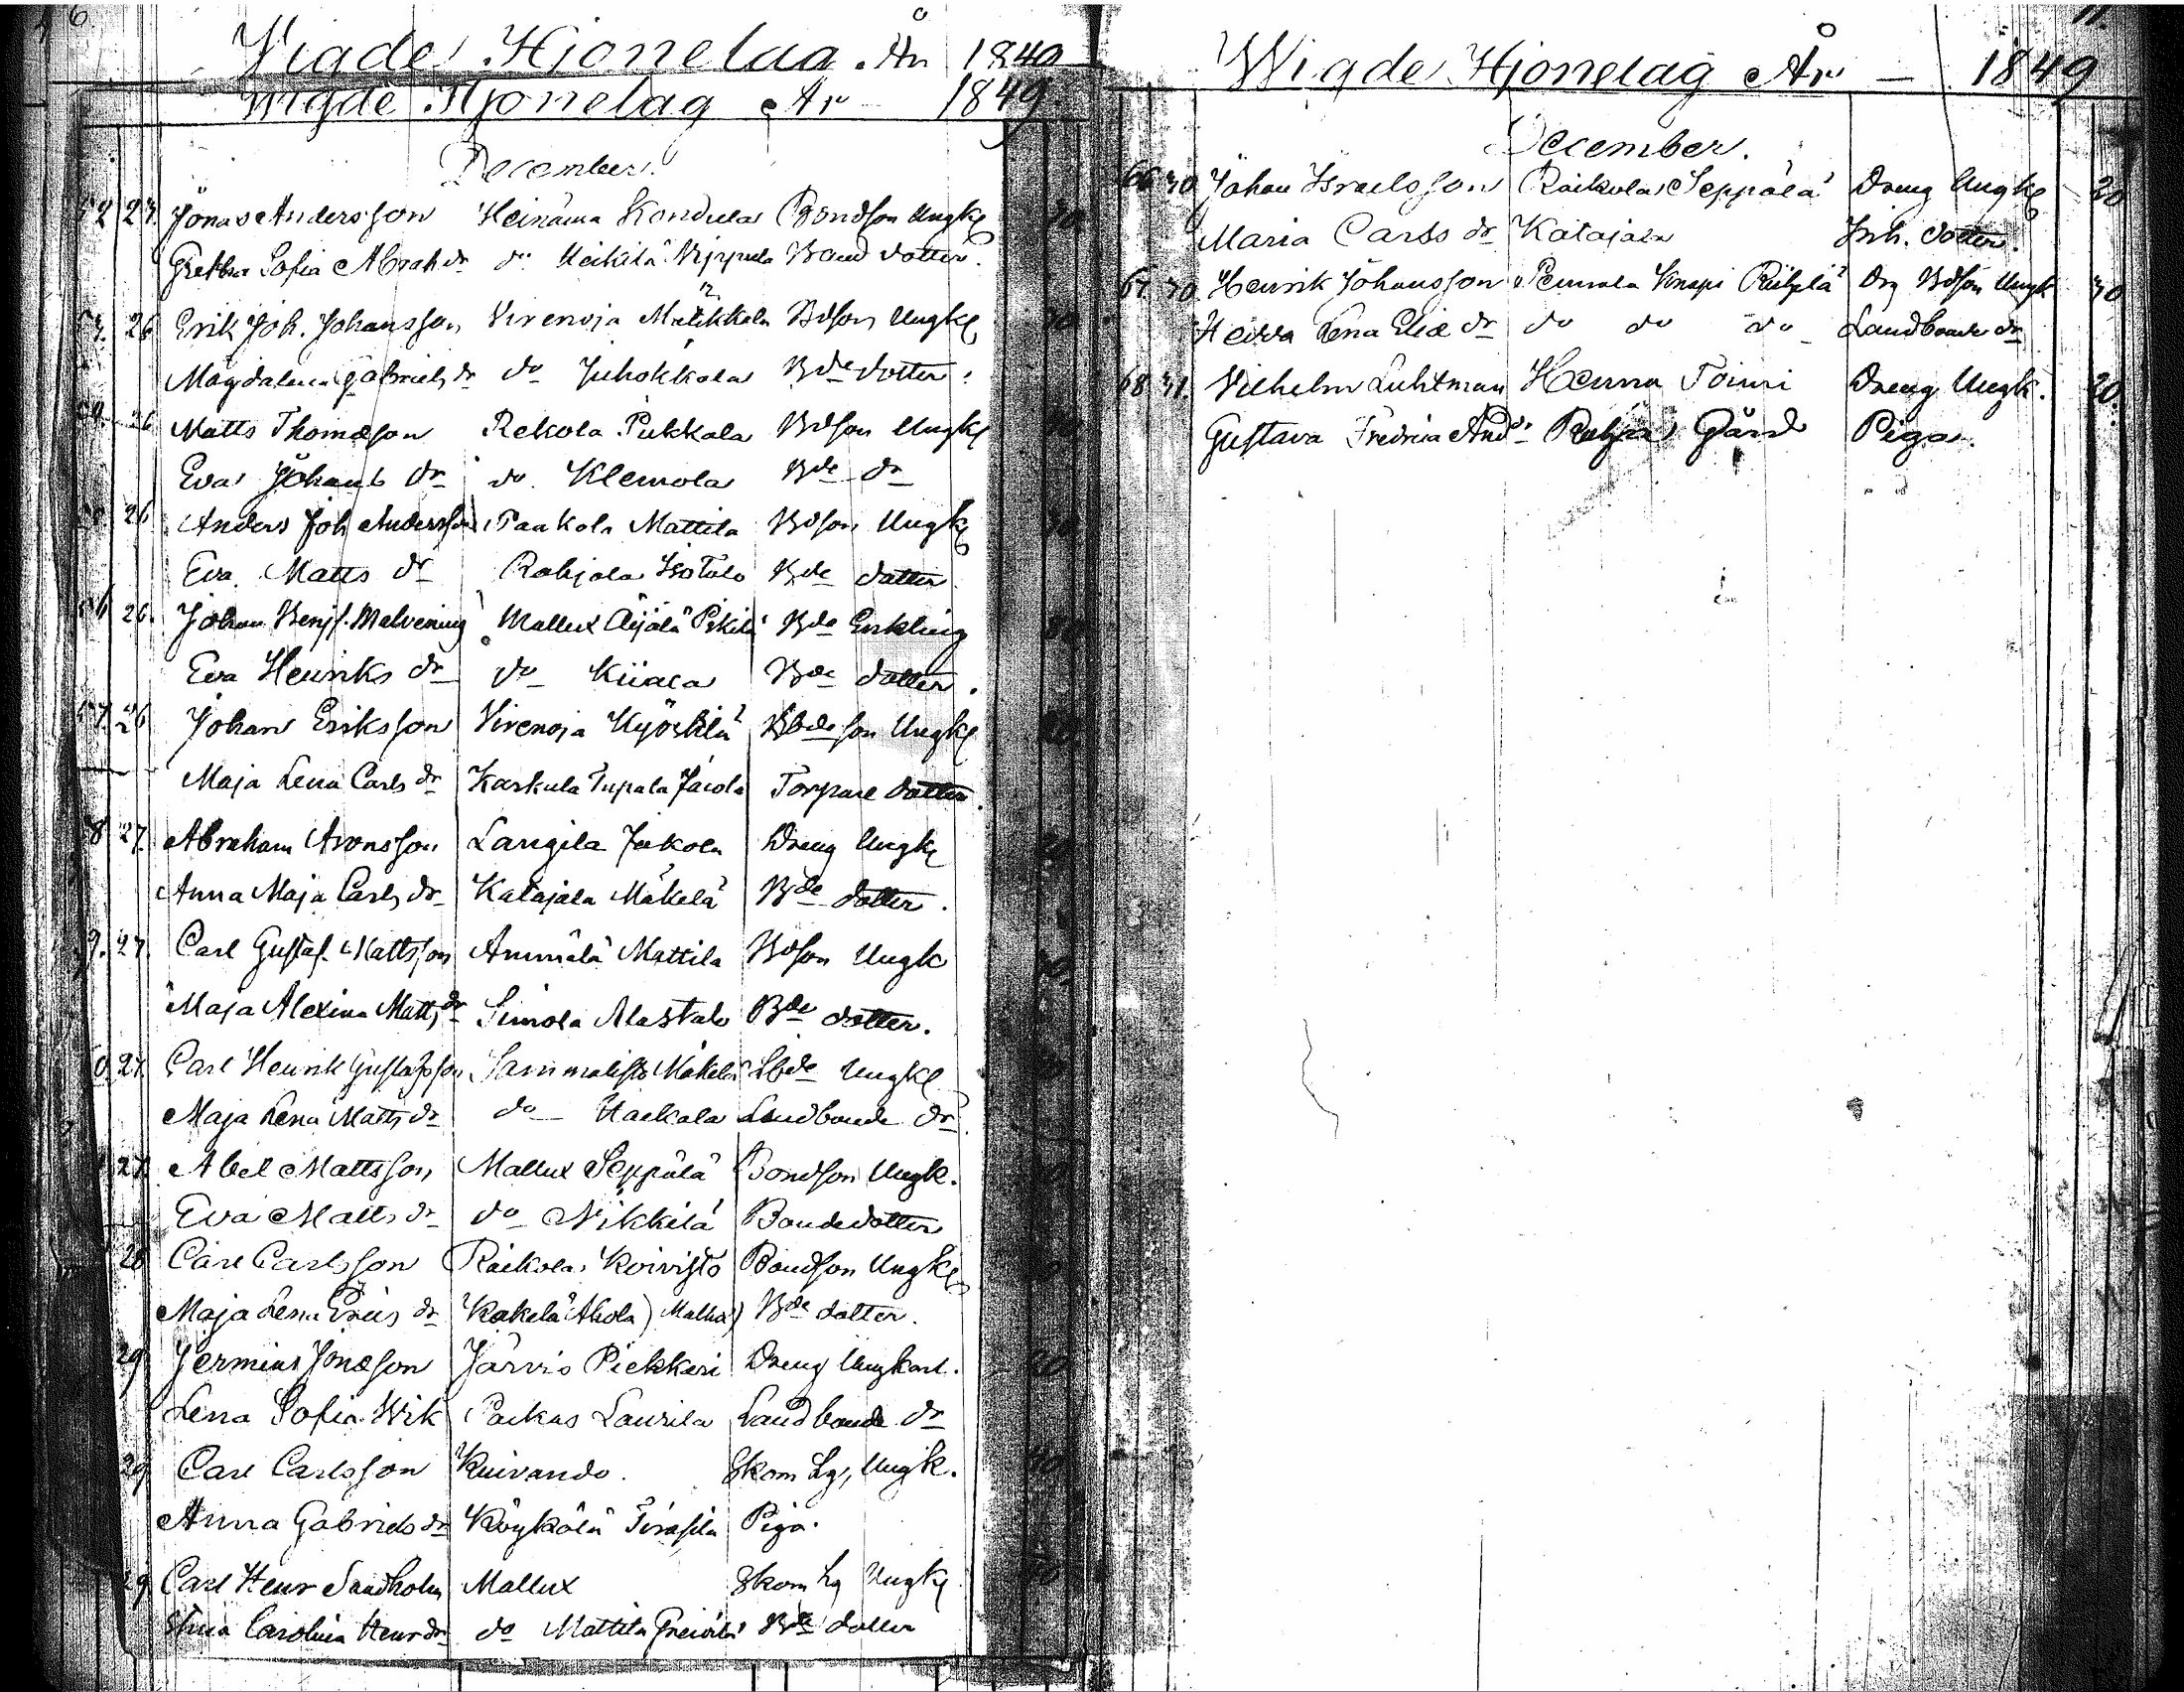 6.
Vigde Hjonelag År 1849
Wigde Hjonelag År 1849
December.
Jonas Andersson Heinämä Bondson Ungkl
Gretha Sofia Abrah dr do Heikilä Bond dotter.
26 Erik Joh. Johansson Virenoja Mattikkala Bdson Ungkl
Magdalena Gabriels dr do Juhokkala Bde dotter.
26 Matts Thomæson Rekola Pukkala Bdson Ungkl
Eva Johans dr do Klemola Bde dr
26 Anders Joh Andersson Paakola Mattila Bdson Ungkl
Eva Matts dr Rahjala Isotalo Bde dotter
26. Johan Benj. Malvenius Mallux Äijälä Bde Enkling
Eva Henriks dr do Kiiala Bde dotter.
26 Johan Eriksson Virenoja Kyöstilä Lbde son Ungkl
Maja Lena Carls dr Karkula Tupala Torpare dotter.
27. Abraham Aronsson Langila Jakola Dreng Ungkl
Anna Maja Carls dr Katajala Mäkelä Bde dotter.
27. Carl Gustaf Mattsson Ammälä Mattila Bdson Ungk
Maja Alexina Matts dr Simola Alastalo Bde dotter.
27. Carl Henrik Gustafsson Sammalisto Mäkelä Lbde Ungkl
Maja Lena Matts dr do Haekala Landbonde dr
27. Abel Mattsson Mallux Seppälä Bondson Ungk.
Eva Matts dr do Nikkilä Bondedotter
28 Carl Carlsson Raikola Koivisto Bondson Ungkl
Maja Lena Eriks dr Kakelä Ahola) Bde dotter.
29 Jermias Jonæson Järvis Piekkari Dreng Ungkarl.
Lena Sofia Wik Paikas Laurila Landbonde dr
29 Carl Carlsson Kuivando. Skom Lg, Ungk.
Anna Gabriels dr Köykälä Piga.
29 Carl Henr Sandholm Mallux Skom Lg Ungkl
Carolina Henr dr do Mattila Bde dotter
11.
Wigde Hjonelag År 1849
December.
66 30 Johan Israelsson Raikola Seppälä Dreng Ungkl 20
Maria Carls dr Katajala Inh. dotter.
67 30 Henrik Johansson Pennala Knapi Riihelä Drg Bdson Ungk 30
Hedda Lena Eliæ dr do do do Landbonde dr
68 31. Vilhelm Luhtman Henna Toivi Dreng Ungk. 20.
Gustava Fredrica And dr Gård Piga.